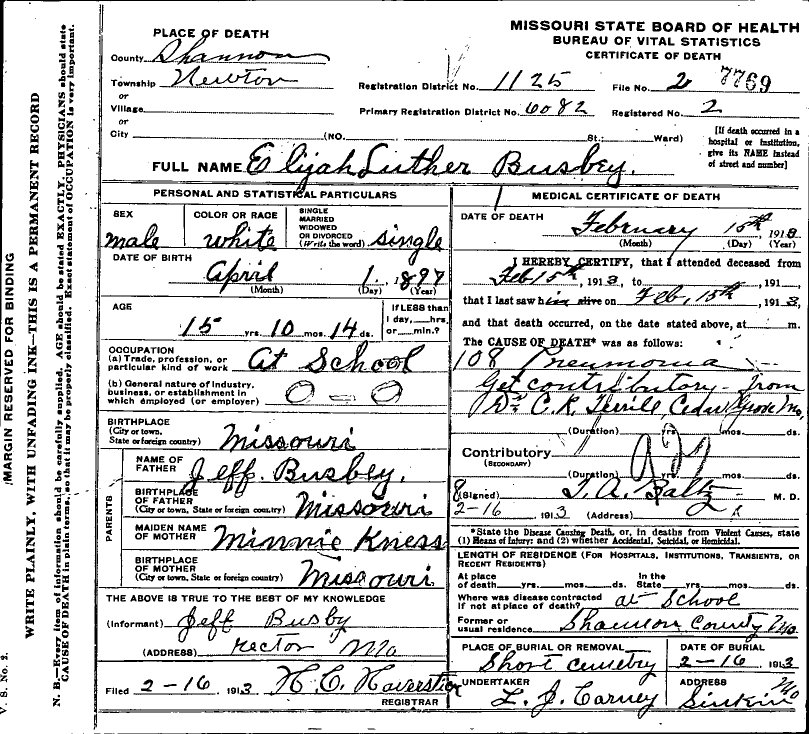 MISSOURI STATE BOARD OF HEALTH
BUREAU OF VITAL STATISTICS
CERTIFICATE OF DEATH
PLACE OF DEATH
County Shannon
Township Newton
or
Village
or
City (NO. St.; Ward)
Registration District No. 1125 File No. 2 7769
Primary Registration District No. 6082 Registered No. 2
[If death occurred in a
hospital or institution,
give its NAME instead
of street and number]
FULL NAME Elijah Luther Busbey.
PERSONAL AND STATISTICAL PARTICULARS
SEX
male
COLOR OR RACE
white
SINGLE
MARRIED
WIDOWED
OR DIVORCED
(Write the word) single
DATE OF BIRTH
April 1, 1897
(Month) (Day) (Year)
AGE
15 yrs. 10 mos. 14 ds.
If LESS than
1 day, hrs.
or min.?
OCCUPATION
(a) Trade, profession, or
particular kind of work At School
(b) General nature of industry,
business, or establishment in
which employed (or employer) 0 - 0
BIRTHPLACE
(City or town,
State or foreign country) Missouri
PARENTS
NAME OF
FATHER Jeff. Busbey.
BIRTHPLACE
OF FATHER
(City or town, State or foreign country) Missouri
MAIDEN NAME
OF MOTHER Minnie Kness
BIRTHPLACE
OF MOTHER
(City or town, State or foreign country) Missouri
THE ABOVE IS TRUE TO THE BEST OF MY KNOWLEDGE
(Informant) Jeff Busby
(ADDRESS) rector Mo
Filed 2-16 1913 H. C. Haverstick
REGISTRAR
MEDICAL CERTIFICATE OF DEATH
DATE OF DEATH
February 15th, 1913
(Month) (Day) (Year)
I HEREBY CERTIFY, that I attended deceased from
Feb 15th, 1913, to , 191
that I last saw him alive on Feb, 15th, 1913,
and that death occurred, on the date stated above, at m.
The CAUSE OF DEATH* was as follows:
108 Pneumonia
Get contributory - from
Dr. C. R. Terrill, Cedar Grove Mo,
(Duration) yrs. mos. ds.
Contributory
(SECONDARY)
92
(Duration) yrs. mos. ds.
(Signed) T. A. Baltz M. D.
2-16 1913 (Address)
*State the Disease Causing Death, or, in deaths from Violent Causes, state
(1) Means of Injury; and (2) whether Accidental, Suicidal, or Homicidal.
LENGTH OF RESIDENCE (FOR HOSPITALS, INSTITUTIONS, TRANSIENTS, OR
RECENT RESIDENTS)
At place
of death yrs. mos. ds.
In the
State yrs. mos. ds.
Where was disease contracted
if not at place of death? at School
Former or
usual residence Shannon County Mo
PLACE OF BURIAL OR REMOVAL
Short cemetry
DATE OF BURIAL
2-16 1913
UNDERTAKER
L. J. Carney
ADDRESS
Sinkin Mo
MARGIN RESERVED FOR BINDING
WRITE PLAINLY, WITH UNFADING INK—THIS IS A PERMANENT RECORD
N. B.—Every item of information should be carefully supplied. AGE should be stated EXACTLY. PHYSICIANS should state
CAUSE OF DEATH in plain terms, so that it may be properly classified. Exact statement of OCCUPATION is very important.
V. S. No. 2.